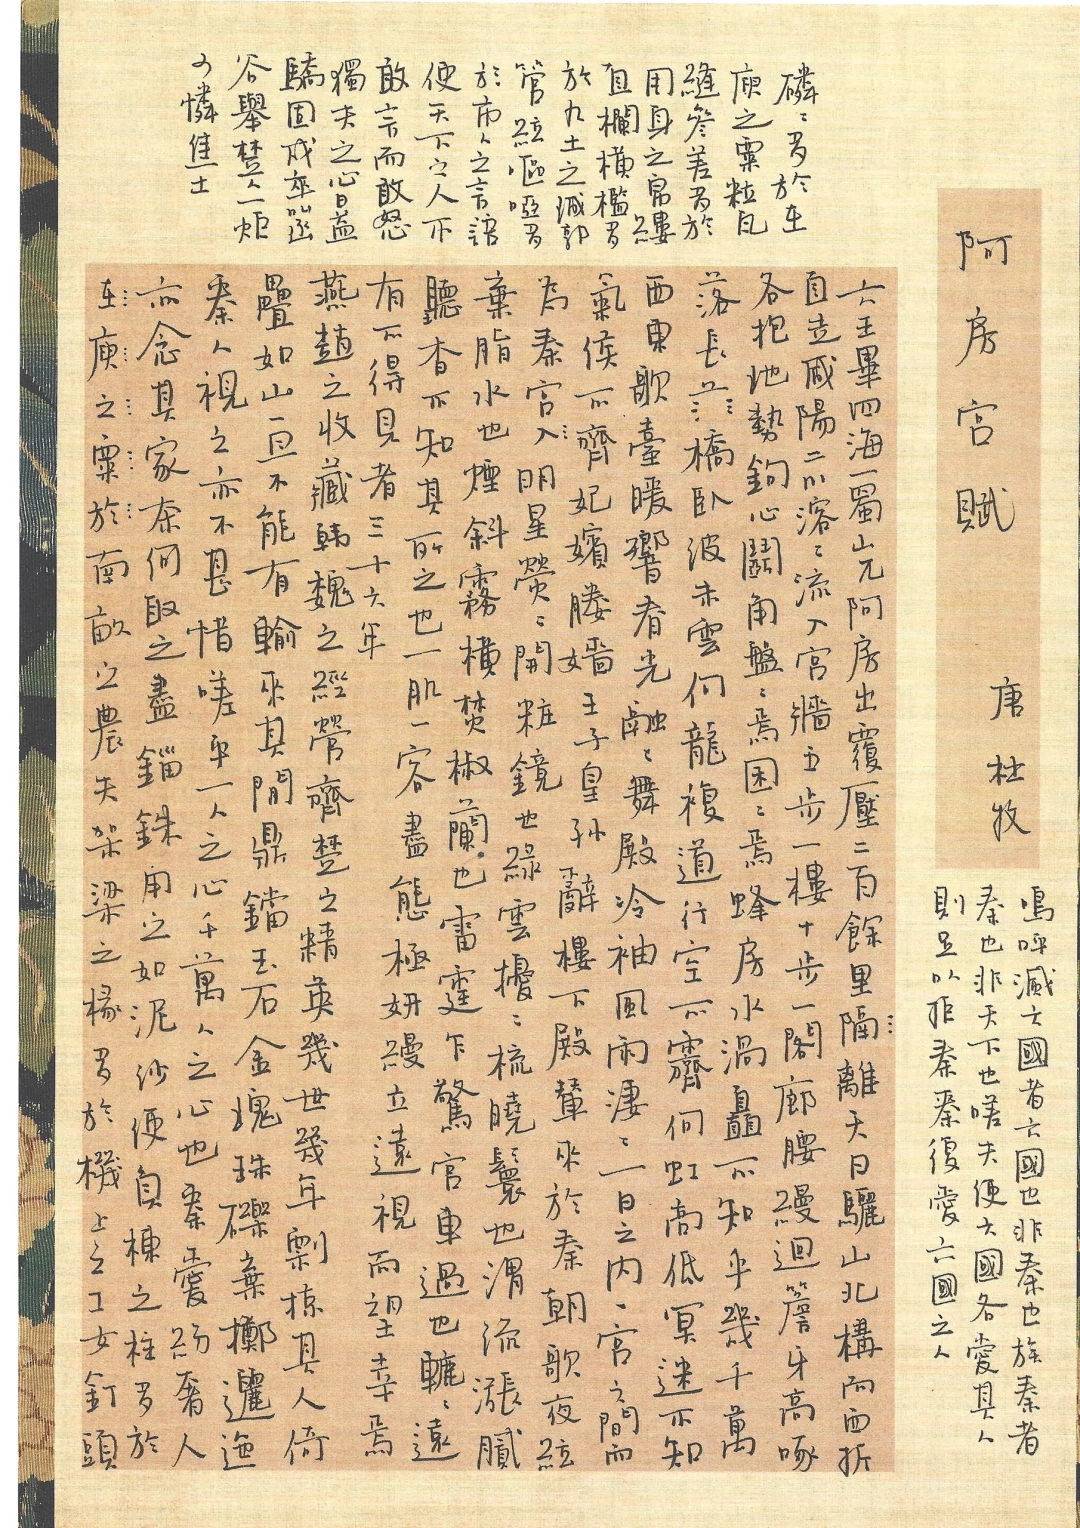 阿房宮賦
唐 杜牧
六王畢四海一蜀山兀阿房出覆壓二百餘里隔離天日驪山北構而西折
直走咸陽二川溶〻流入宮牆五步一樓十步一閣廊腰縵迴簷牙高啄
各抱地勢鉤心鬪角盤〻焉囷〻焉蜂房水渦矗不知乎幾千萬
落長橋臥波未雲何龍複道行空不霽何虹高低冥迷不知
西東歌臺暖響春光融〻舞殿冷袖風雨淒〻一日之內一宮之間而
氣候不齊妃嬪媵嬙王子皇孫辭樓下殿輦來於秦朝歌夜絃
為秦宮人明星熒〻開粧鏡也綠雲擾〻梳曉鬟也渭流漲膩
棄脂水也煙斜霧橫焚椒蘭也雷霆乍驚宮車過也轆〻遠
聽杳不知其所之也一肌一容盡態極妍縵立遠視而望幸焉
有不得見者三十六年
燕趙之收藏韓魏之經營齊楚之精英幾世幾年剽掠其人倚
疊如山一旦不能有輸來其間鼎鐺玉石金塊珠礫棄擲邐迤
秦人視之亦不甚惜嗟乎一人之心千萬人之心也秦愛紛奢人
亦念其家奈何取之盡錙銖用之如泥沙使負棟之柱多於
在庾之粟於南畝之農夫架梁之椽多於機上之工女釘頭
磷〻多於在
庾之粟粒瓦
縫參差多於
用身之帛縷
直欄橫檻多
於九土之城郭
管絃嘔啞多
於市人之言語
使天下之人不
敢言而敢怒
獨夫之心日益
驕固戍卒叫函
谷舉楚人一炬
可憐焦土
嗚呼滅六國者六國也非秦也族秦者
秦也非天下也嗟夫使六國各愛其人
則足以拒秦秦復愛六國之人